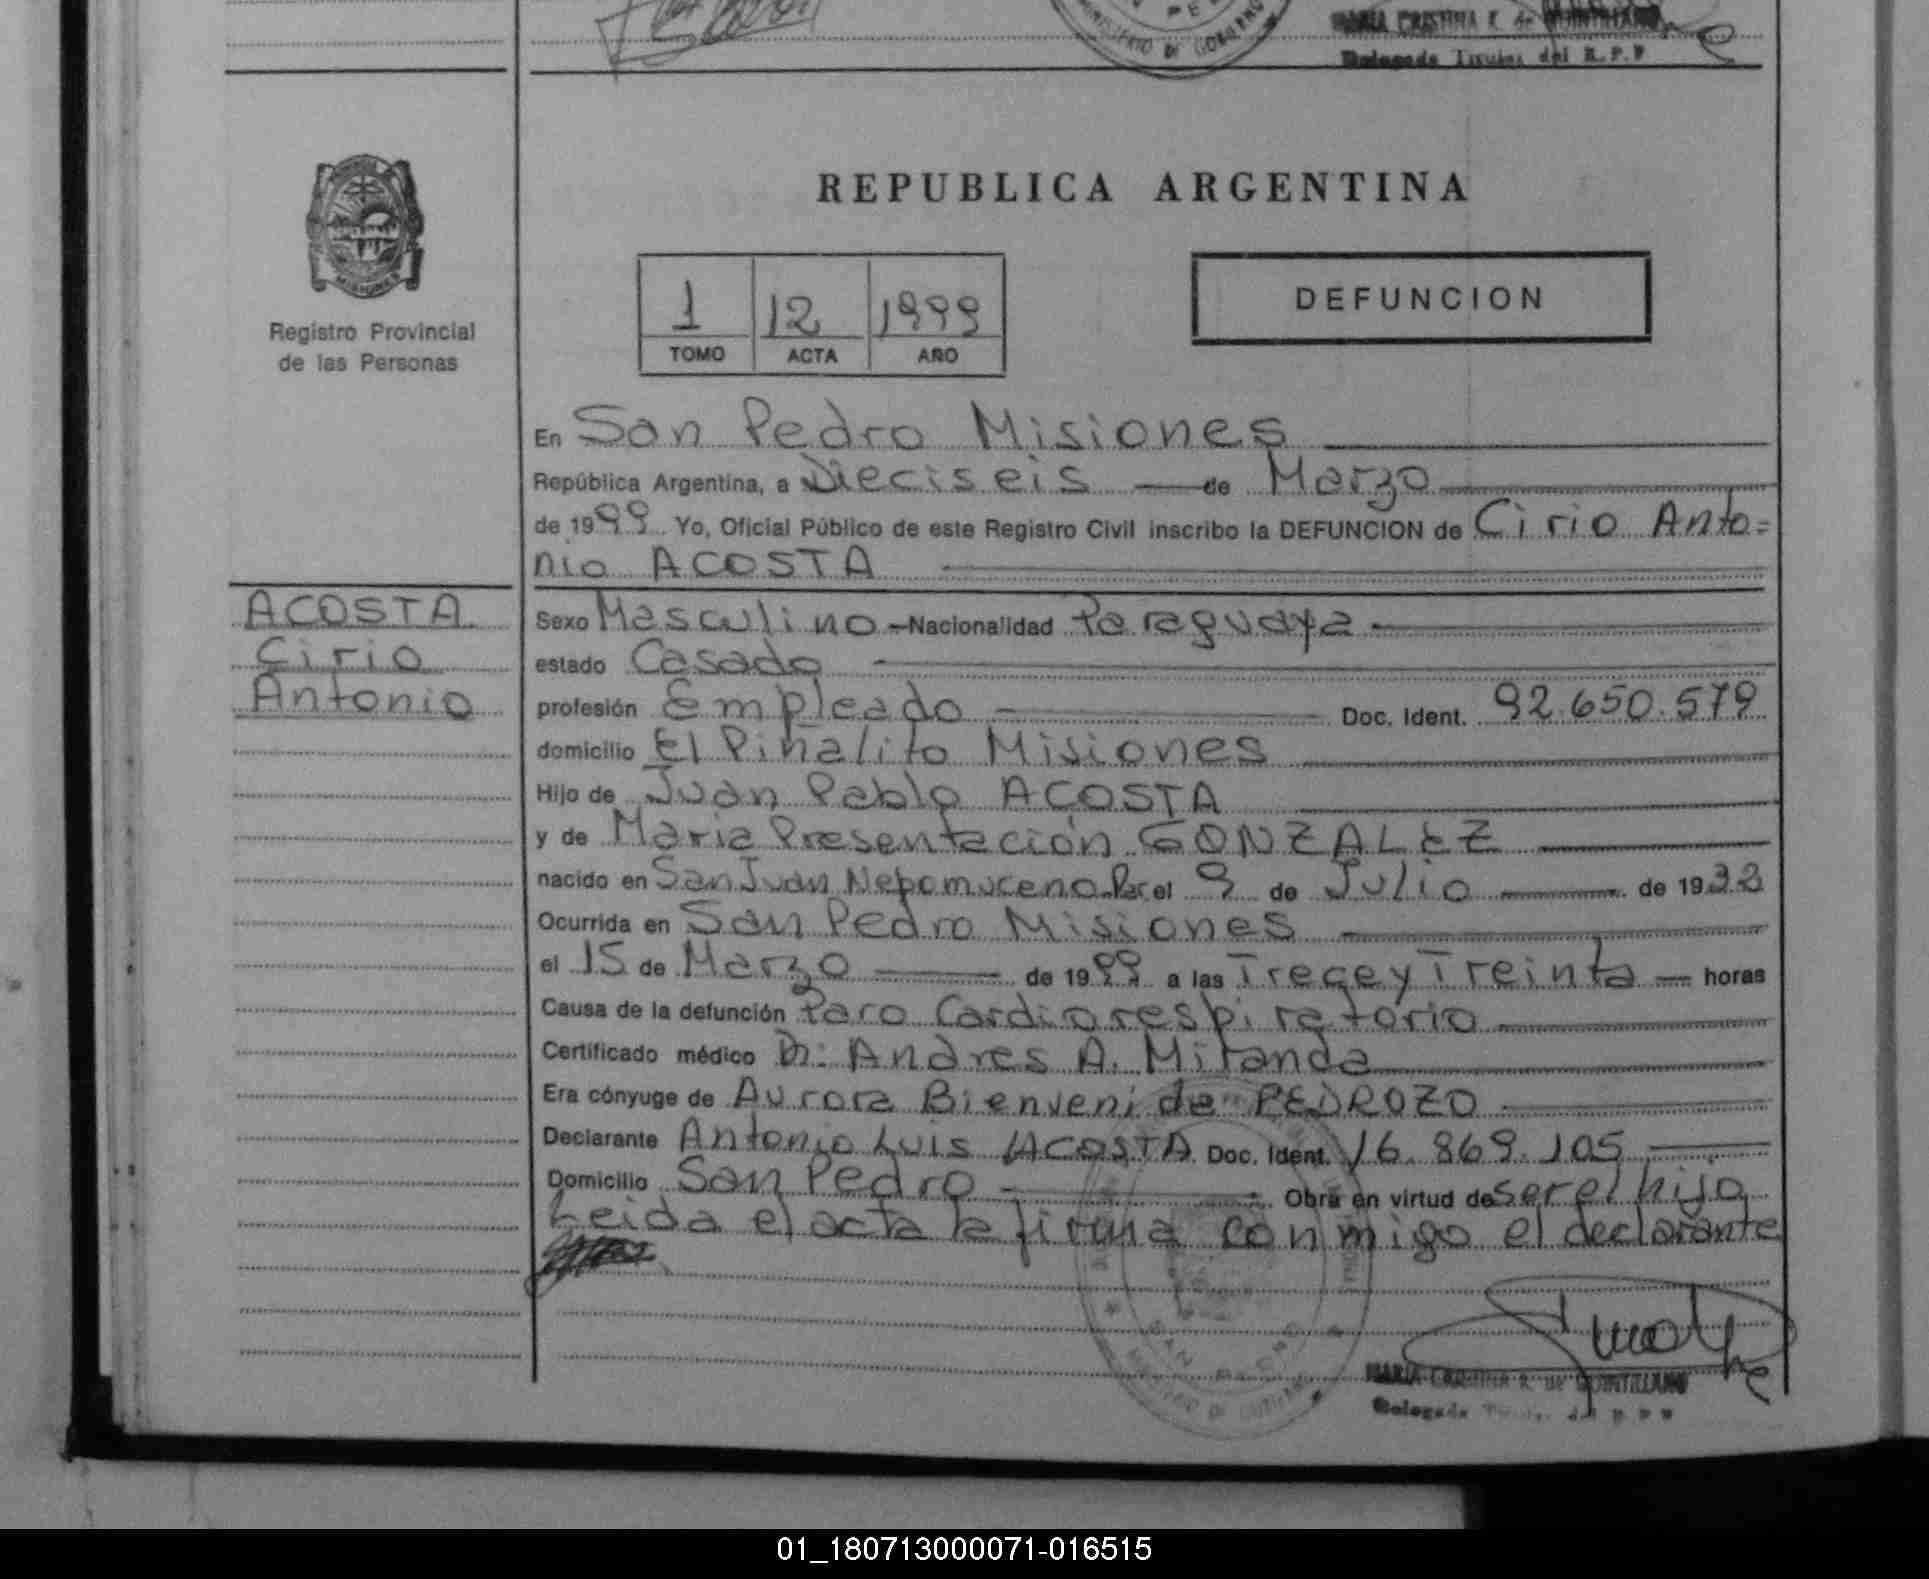 MINISTERIO DE GOBIERNO
MARIA CRISTINA R. de QUINTILLANO
Delegada Titular del R.P.P
MISIONES
Registro Provincial
de las Personas
REPUBLICA ARGENTINA
1 12 1999
TOMO ACTA AÑO
DEFUNCION
En San Pedro Misiones
República Argentina, a Dieciseis de Marzo
de 1999 Yo, Oficial Público de este Registro Civil inscribo la DEFUNCION de Cirio Anto=
nio ACOSTA
ACOSTA
Cirio
Antonio
Sexo Masculino - Nacionalidad Paraguaya -
estado Casado
profesión Empleado Doc. Ident. 92.650.579
domicilio El Piñalito Misiones
Hijo de Juan Pablo ACOSTA
y de Maria Presentación GONZALEZ
nacido en San Juan Nepomuceno Par el 9 de Julio de 19
Ocurrida en San Pedro Misiones
el 15 de Marzo de 1999 a las Trece y Treinta horas
Causa de la defunción Paro Cardiorespiratorio
Certificado médico Dr: Andres A. Miranda
Era cónyuge de Aurora Bienvenida PEDROZO
Declarante Antonio Luis ACOSTA Doc. Ident. 16.869.105
Domicilio San Pedro Obra en virtud de ser el hijo
Leida el acta la firma conmigo el declarante
SAN PEDRO
MINISTERIO DE GOBIERNO
MARIA CRISTINA R. de QUINTILLANO
Delegada Titular del R.P.P
01_180713000071-016515